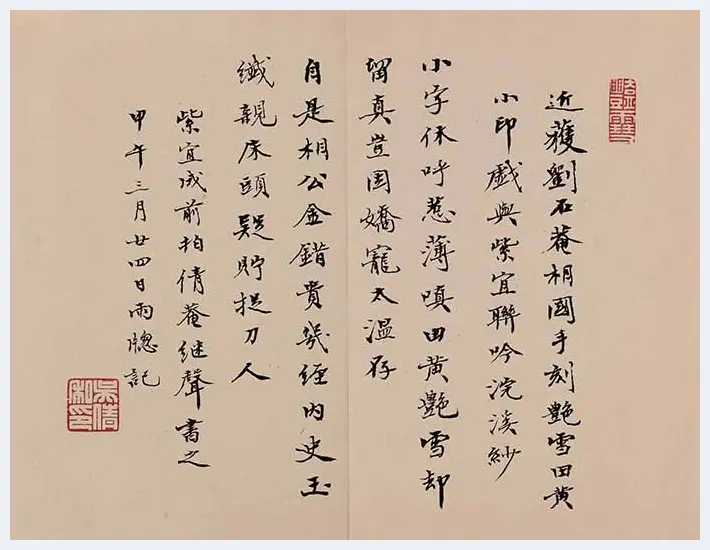 近獲劉石菴相國手刻艷雪田黃
小印戲與紫宜聯吟浣溪紗
小字休呼惹薄嗔田黃艷雪却
留真豈因嬌寵太溫存
自是相公金錯貴幾經內史玉
纖親床頭疑貯捉刀人
紫宜成前拍倩菴繼聲書之
甲午三月廿四日雨牕記
吳倩私印